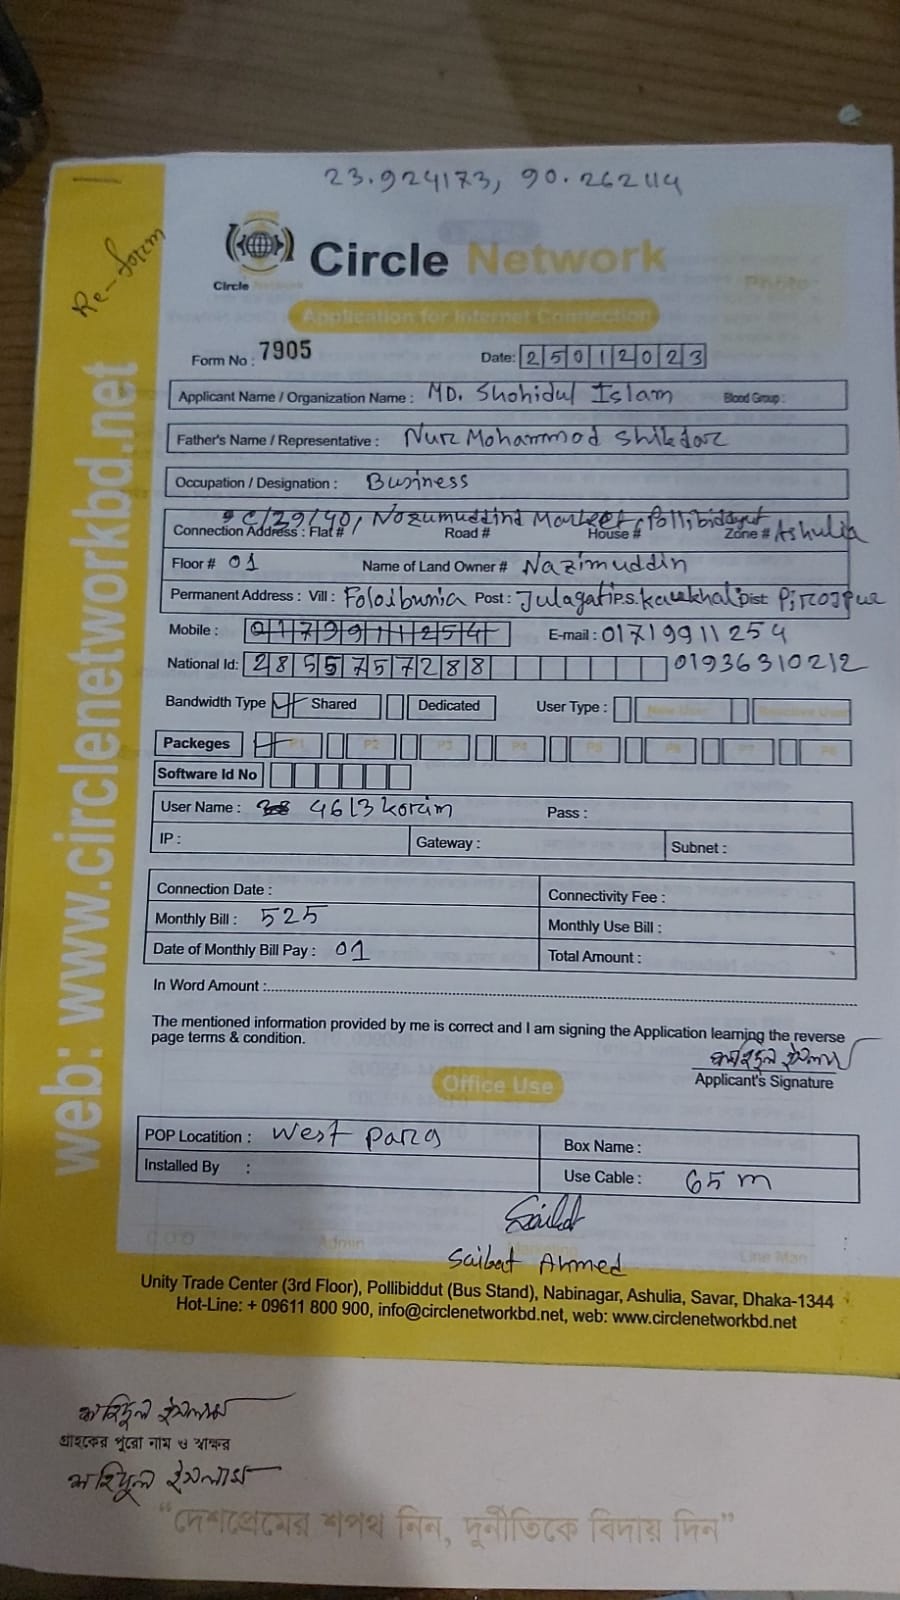 23.924173, 90.262114
Re-form
Circle Network
Circle Network
Application for Internet Connection
Photo
Form No : 7905 Date: 25012023
Applicant Name / Organization Name : MD. Shohidul Islam Blood Group :
Father's Name / Representative : Nur Mohammod Shikdar
Occupation / Designation : Business
C/39/40, Nozumuddind Market, Pollibiddyut
Connection Address : Flat # Road # House # Zone # Ashulia
Floor # 01 Name of Land Owner # Nazimuddin
Permanent Address : Vill : Foloibunia Post : Julagati P.S. Kaukhal Dist: Pirojpur
Mobile : 0179911254 E-mail : 01719911254
National Id: 2855757288 01936310212
Bandwidth Type Shared Dedicated User Type : New User Reactive User
Packeges P1 P2 P3 P4 P5 P6 P7 P8
Software Id No
User Name : 4613korim Pass :
IP : Gateway : Subnet :
Connection Date : Connectivity Fee :
Monthly Bill : 525 Monthly Use Bill :
Date of Monthly Bill Pay : 01 Total Amount :
In Word Amount :
The mentioned information provided by me is correct and I am signing the Application learning the reverse
page terms & condition.
শহিদুল ইসলাম
Applicant's Signature
Office Use
POP Locatition : West para Box Name :
Installed By : Use Cable : 65 m
Saibat
Saibat Ahmed
Admin Marketing Line Man
Unity Trade Center (3rd Floor), Pollibiddut (Bus Stand), Nabinagar, Ashulia, Savar, Dhaka-1344
Hot-Line: + 09611 800 900, info@circlenetworkbd.net, web: www.circlenetworkbd.net
web: www.circlenetworkbd.net
শহিদুল ইসলাম
গ্রাহকের পুরো নাম ও স্বাক্ষর
শহিদুল ইসলাম
“দেশপ্রেমের শপথ নিন, দুর্নীতিকে বিদায় দিন”